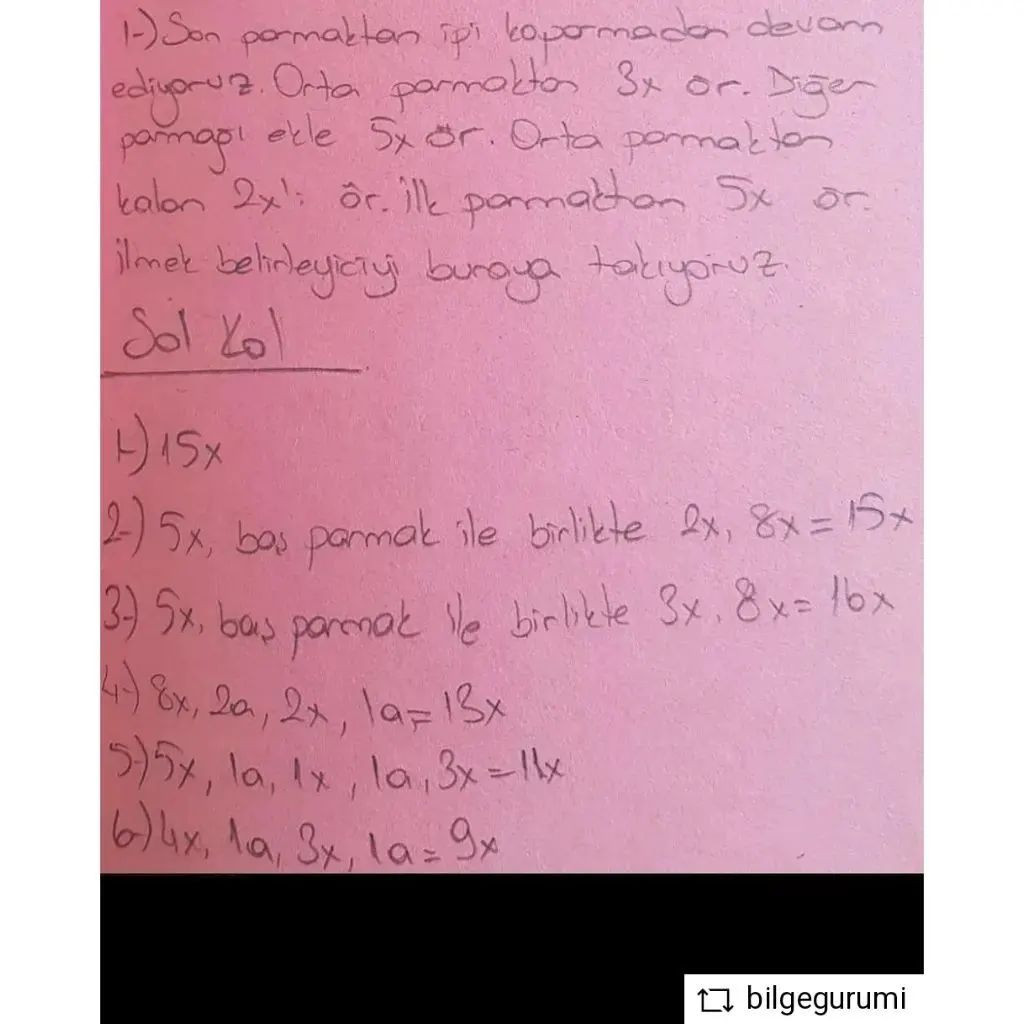 1-) Son parmaktan ipi koparmadan devam
ediyoruz. Orta parmaktan 3x ör. Diğer
parmağı ekle 5x ör. Orta parmaktan
kalan 2x'i ör. ilk parmaktan 5x ör.
ilmek belirleyiciyi buraya takıyoruz.
Sol Kol
1-) 15x
2-) 5x, baş parmak ile birlikte 2x, 8x = 15x
3-) 5x, baş parmak ile birlikte 3x, 8x = 16x
4-) 8x, 2a, 2x, 1a = 13x
5-) 5x, 1a, 1x, 1a, 3x = 11x
6-) 4x, 1a, 3x, 1a = 9x
bilgegurumi